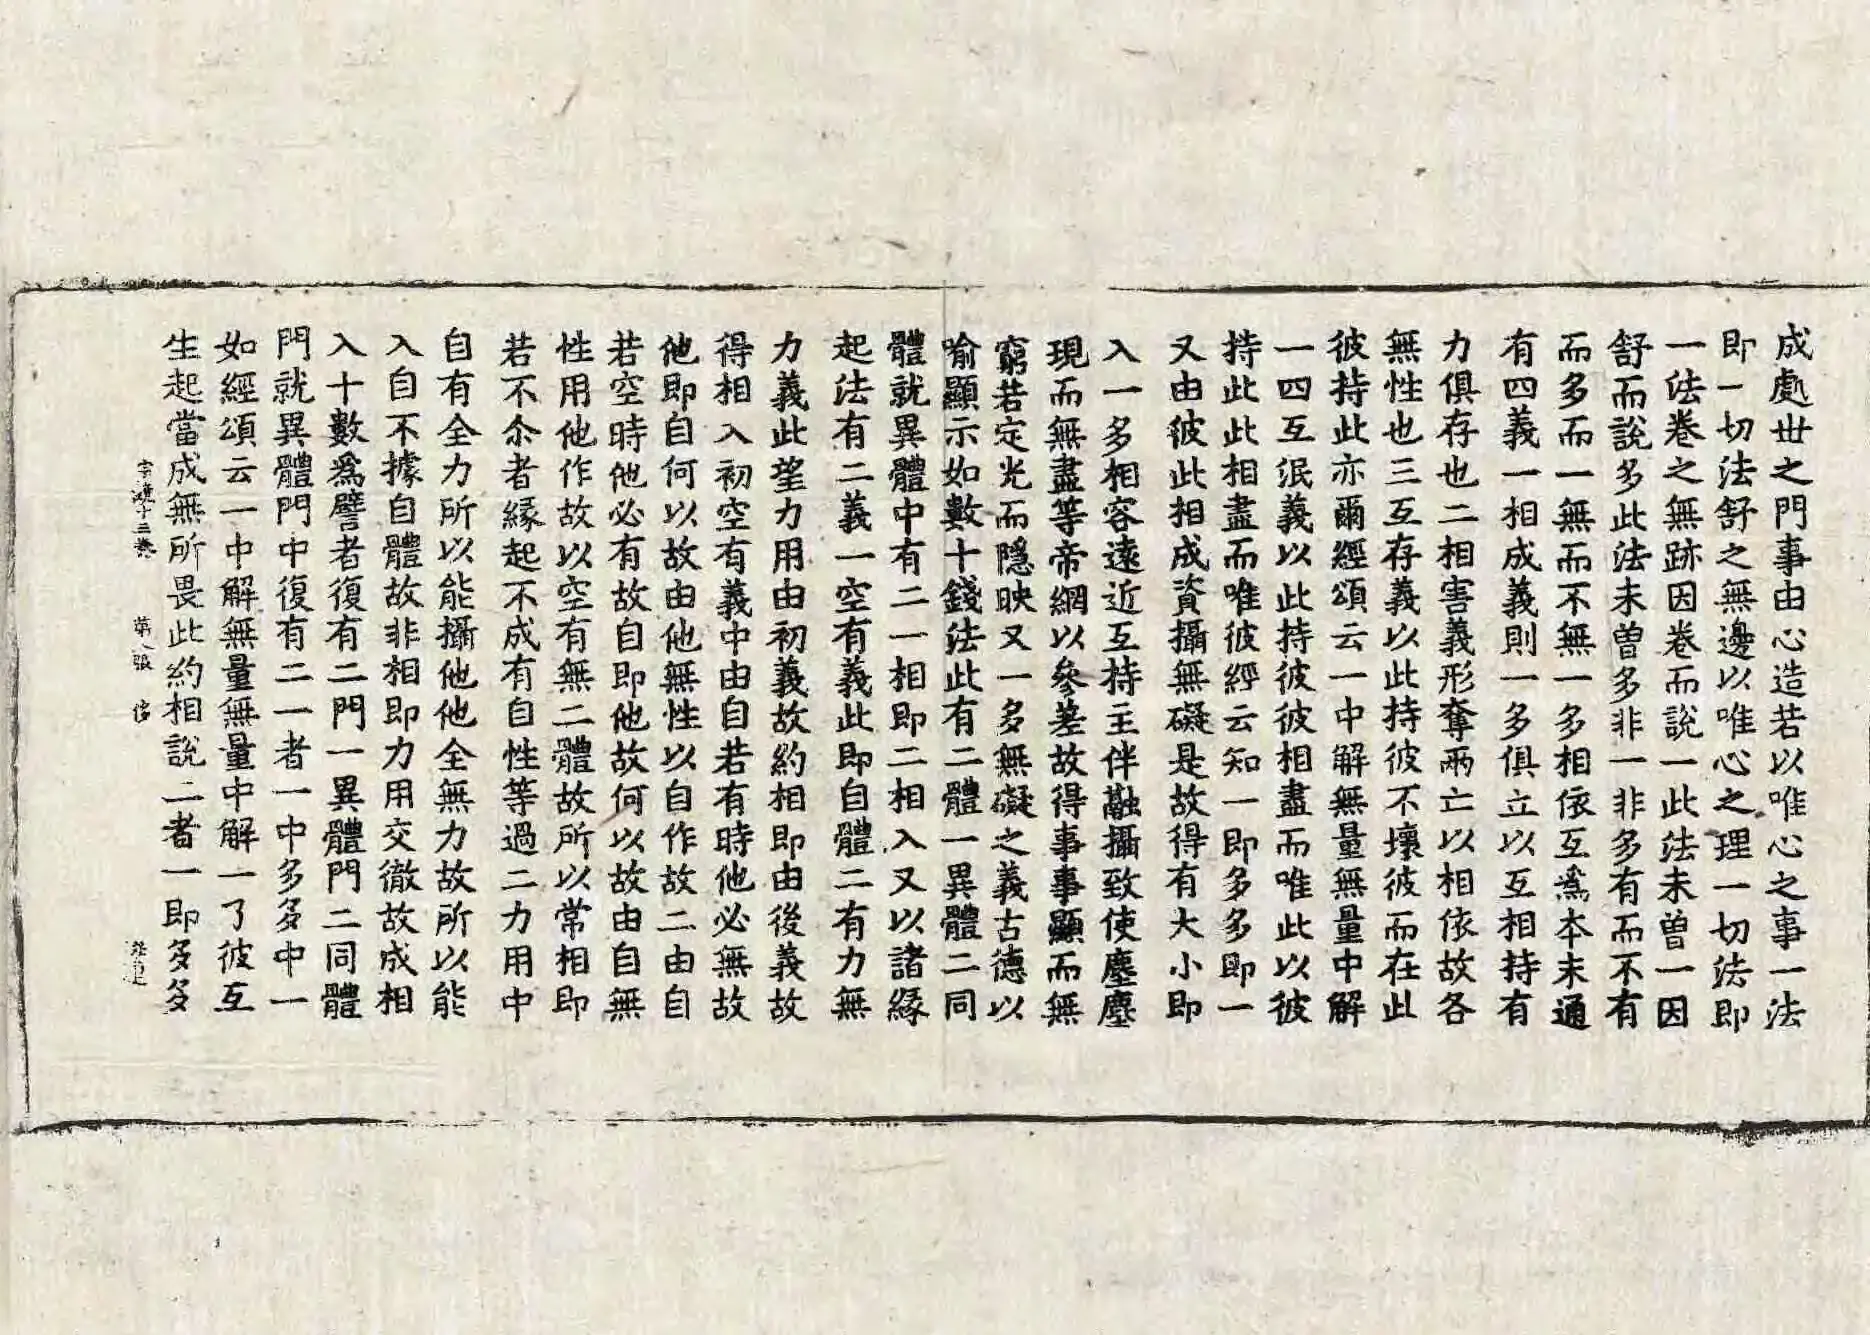 成處世之門事由心造若以唯心之事一法
即一切法舒之無邊以唯心之理一切法即
一法卷之無跡因卷而說一此法未曾一因
舒而說多此法未曾多非一非多有而不有
而多而一無而不無一多相依互爲本末通
有四義一相成義則一多俱立以互相持有
力俱存也二相害義形奪兩亡以相依故各
無性也三互存義以此持彼不壞彼而在此
彼持此亦爾經頌云一中解無量無量中解
一四互泯義以此持彼彼相盡而唯此以彼
持此此相盡而唯彼經云知一即多多即一
又由彼此相成資攝無礙是故得有大小即
入一多相容遠近互持主伴融攝致使塵塵
現而無盡等帝網以參差故得事事顯而無
窮若定光而隱映又一多無礙之義古德以
喻顯示如數十錢法此有二體一異體二同
體就異體中有二一相即二相入又以諸緣
起法有二義一空有義此即自體二有力無
力義此望力用由初義故約相即由後義故
得相入初空有義中由自若有時他必無故
他即自何以故由他無性以自作故二由自
若空時他必有故自即他故何以故由自無
性用他作故以空有無二體故所以常相即
若不尒者緣起不成有自性等過二力用中
自有全力所以能攝他他全無力故所以能
入自不據自體故非相即力用交徹故成相
入十數爲譬者復有二門一異體門二同體
門就異體門中復有二一者一中多多中一
如經頌云一中解無量無量中解一了彼互
生起當成無所畏此約相說二者一即多多
宗鏡十三卷 第八張